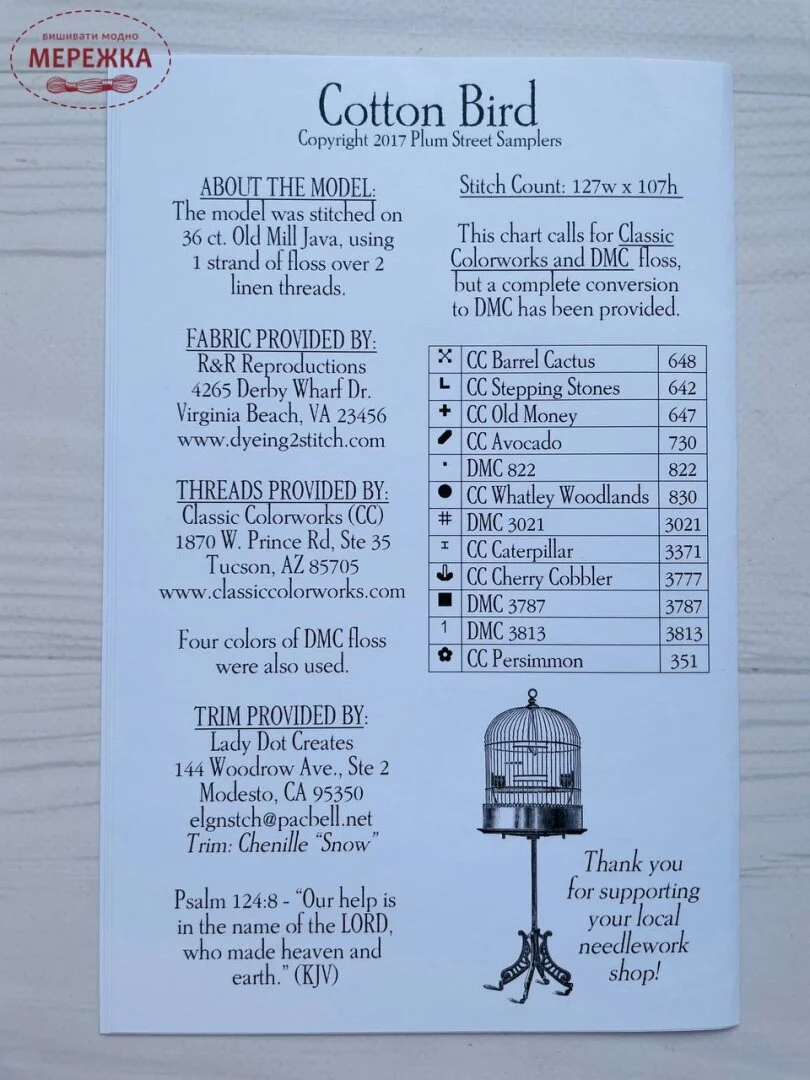 вишивати модно
МЕРЕЖКА
Cotton Bird
Copyright 2017 Plum Street Samplers
ABOUT THE MODEL:
The model was stitched on
36 ct. Old Mill Java, using
1 strand of floss over 2
linen threads.
FABRIC PROVIDED BY:
R&R Reproductions
4265 Derby Wharf Dr.
Virginia Beach, VA 23456
www.dyeing2stitch.com
THREADS PROVIDED BY:
Classic Colorworks (CC)
1870 W. Prince Rd, Ste 35
Tucson, AZ 85705
www.classiccolorworks.com
Four colors of DMC floss
were also used.
TRIM PROVIDED BY:
Lady Dot Creates
144 Woodrow Ave., Ste 2
Modesto, CA 95350
elgnstch@pacbell.net
Trim: Chenille “Snow”
Psalm 124:8 - “Our help is
in the name of the LORD,
who made heaven and
earth.” (KJV)
Stitch Count: 127w x 107h
This chart calls for Classic
Colorworks and DMC floss,
but a complete conversion
to DMC has been provided.
CC Barrel Cactus 648
CC Stepping Stones 642
CC Old Money 647
CC Avocado 730
DMC 822 822
CC Whatley Woodlands 830
# DMC 3021 3021
CC Caterpillar 3371
CC Cherry Cobbler 3777
DMC 3787 3787
1 DMC 3813 3813
CC Persimmon 351
Thank you
for supporting
your local
needlework
shop!